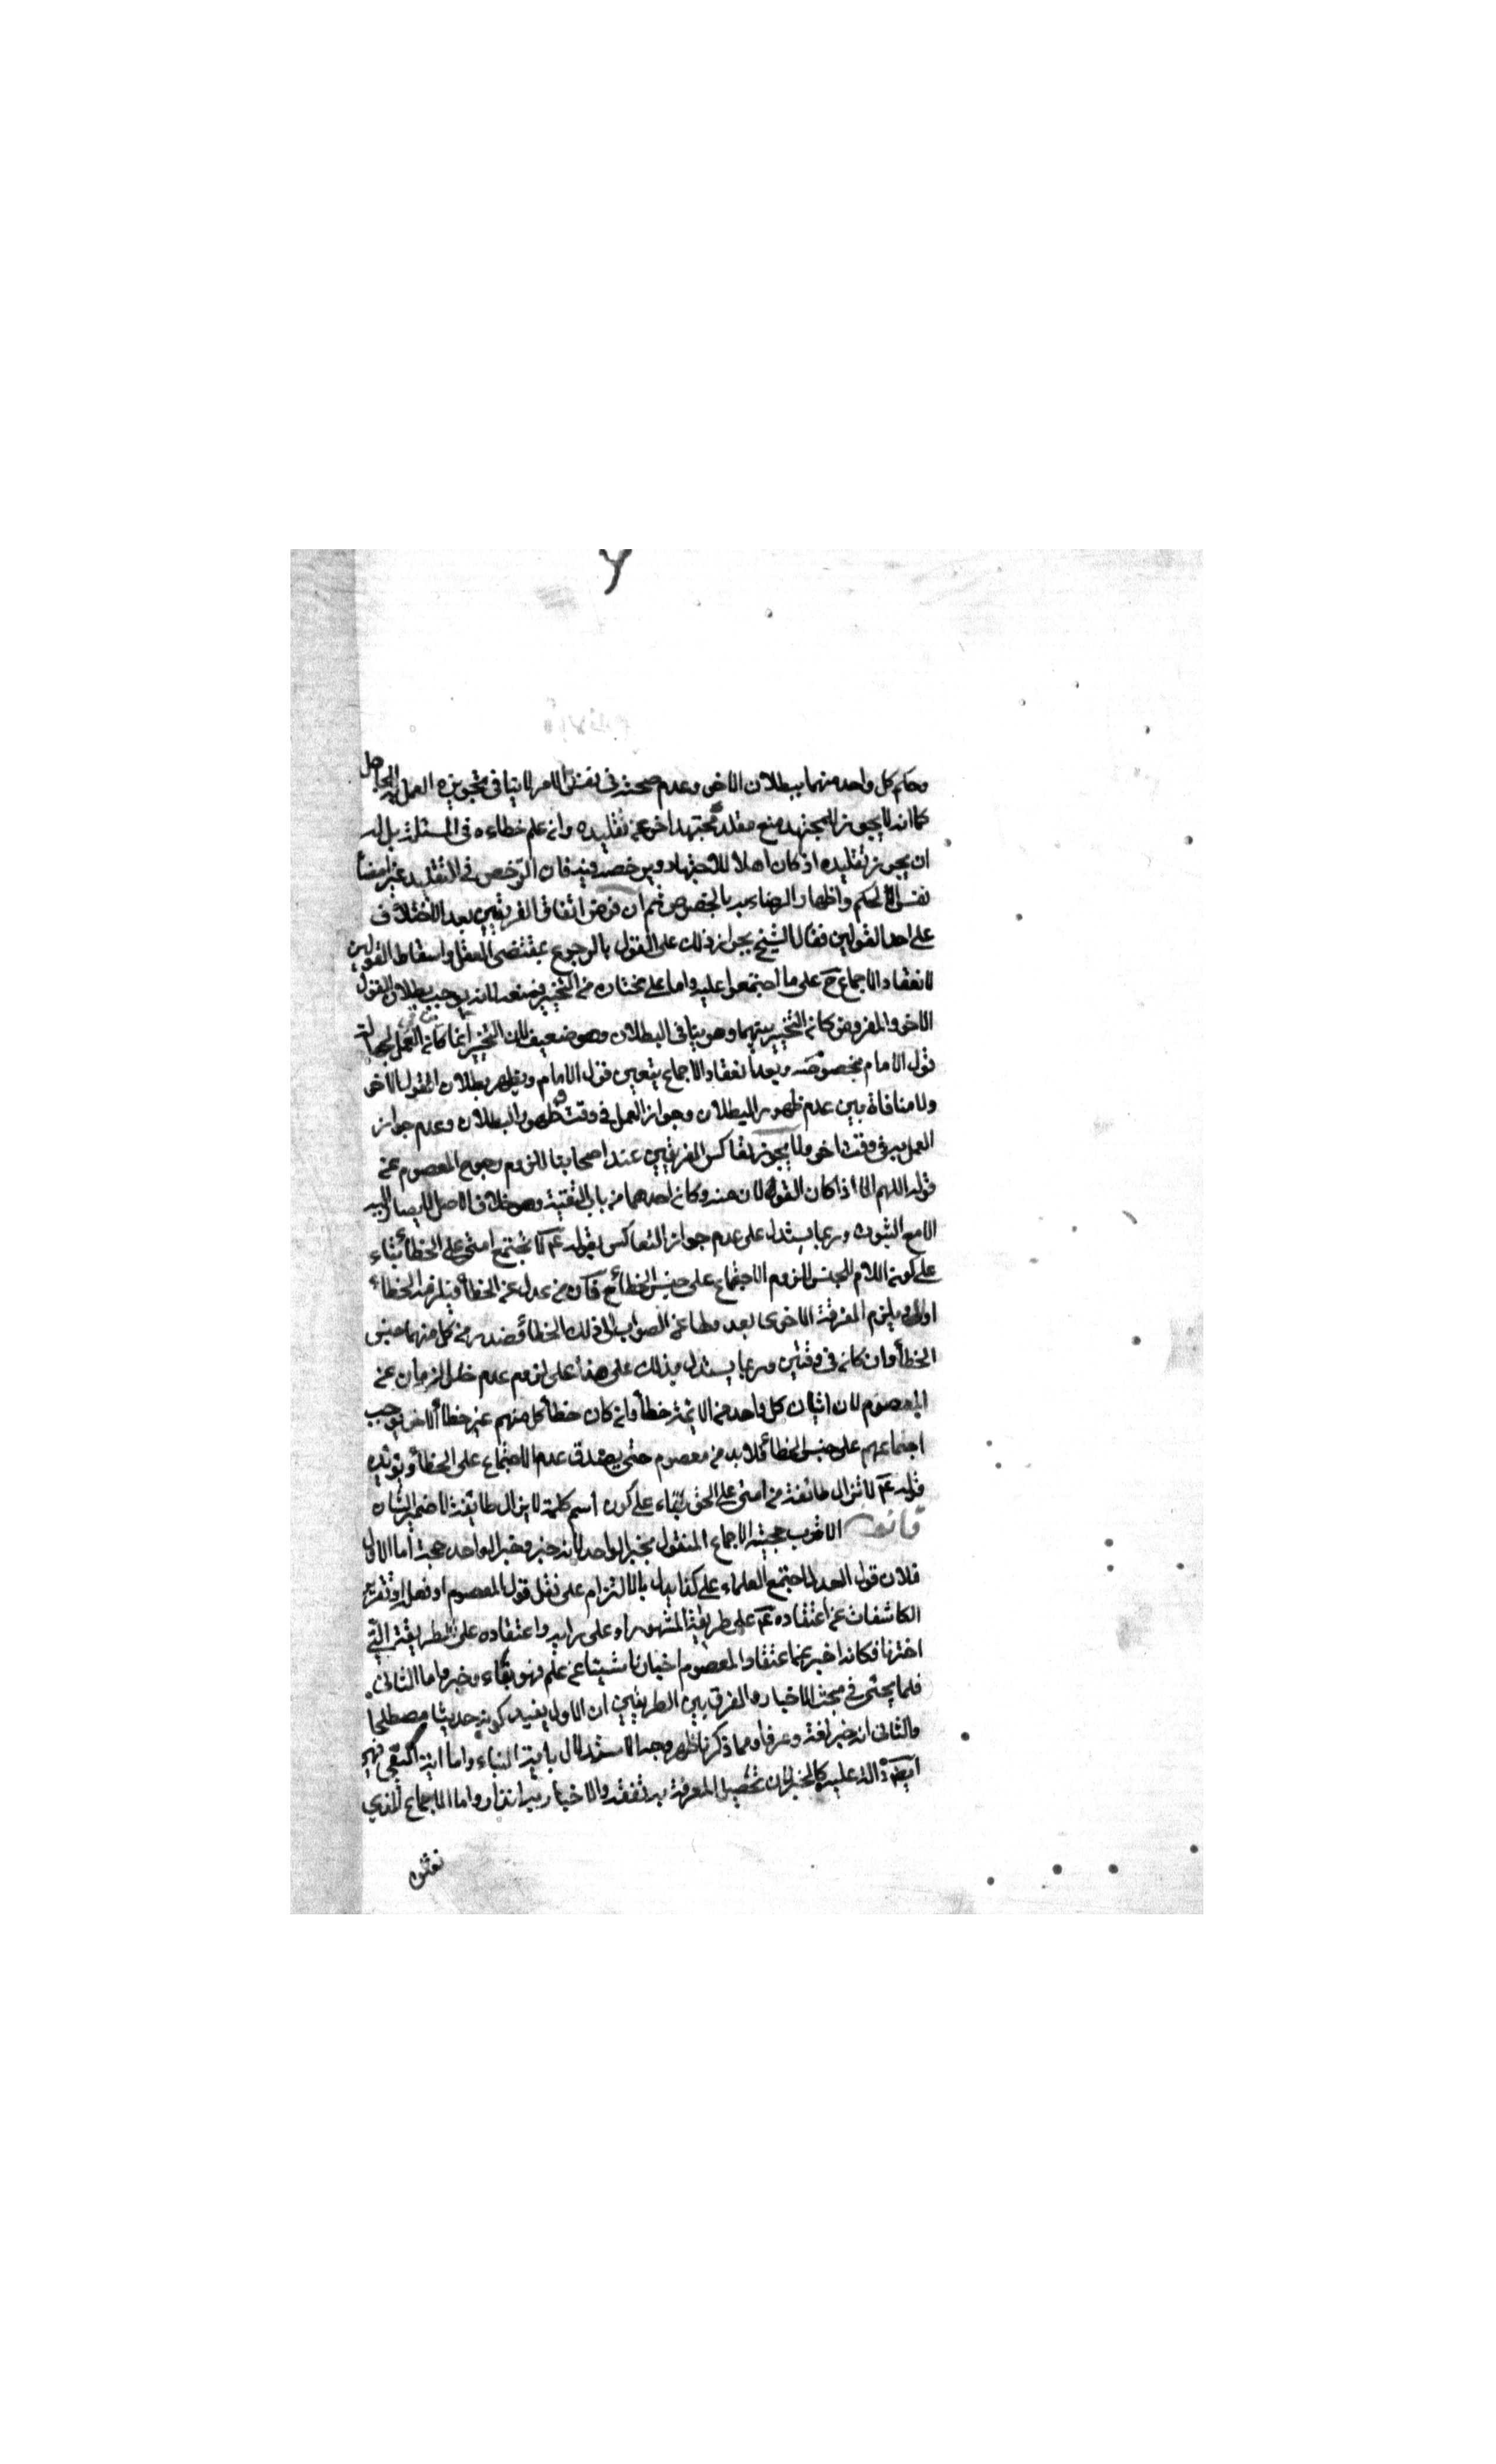 وحكم كل واحد منهما ببطلان الاخر وعدم صحته في نفس الامر لا ينافي تجويزه العمل به للجاهل
كما انه لا يجوز للمجتهد منع مقلد مجتهد اخر عن تقليده وان علم خطاءه في المسئلة بل له
ان يجوز تقليده اذ كان اهلا للاجتهاد ويرخصه فيه فان الرخص في التقليد غير امضاء
نفس الحكم واظهار الرضاء به بالخصوص ثم ان فرض اتفاق الفريقين بعد الاختلاف
على احد القولين فقال الشيخ بجواز ذلك على القول بالرجوع بمقتضى العقل واسقاط القولين
لانعقاد الاجماع ح على ما اجتمعوا عليه واما على مختاره من التخيير فمنعه لانه يوجب بطلان القول
الاخر والمفروض كان التخيير بينهما وهو ينافي البطلان وهو ضعيف لان التخيير انما كان في العمل لجهالة
قول الامام بخصوصه وبعد انعقاد الاجماع يتعين قول الامام ويظهر بطلان القول الاخر
ولا منافاة بين عدم ظهور البطلان وجواز العمل في وقت وظهور البطلان وعدم جواز
العمل به في وقت اخر ولا يجوز تعاكس الفريقين عند اصحابنا للزوم رجوع المعصوم عن
قوله اللهم الا اذا كان القولان منه وكان احدهما من باب التقية وهو خلاف الاصل لا يصار اليه
الا مع الثبوت وربما يستدل على عدم جواز التعاكس بقوله عم لا تجتمع امتي على الخطأ بناء
على كون اللام للجنس للزوم الاجتماع على جنس الخطأ ح فكان من عدل عن الخطأ فيلزمه الخطاء
اولا ويلزم الفرقة الاخرى بعد عدولها عن الصواب الى ذلك الخطأ فصدر من كل منهما جنس
الخطأ وان كان في وقتين وربما يستدل بذلك على هذا على لزوم عدم خلو الزمان عن
المعصوم لان اتيان كل واحد من الائمة خطأ وان كان خطأ كل منهم غير خطأ الاخر يوجب
اجتماعهم على جنس الخطأ فلا بد من معصوم حتى يصدق عدم الاجتماع على الخطأ ويؤيده
قوله عم لا تزال طائفة من امتي على الحق بناء على كون اسم كلمة لا يزال طائفة لا ضمير الشان
قانون الاقرب حجية الاجماع المنقول بخبر الواحد لانه خبر وخبر الواحد حجة اما الاول
فلان قول العدل اجتمع العلماء على كذا يدل بالالتزام على نقل قول المعصوم او فعله او تقريره
الكاشفات عن اعتقاده عم على طريقة المشهور او على رايه واعتقاده على الطريقة التي
اخترنا فكانه اخبر عن اعتقاد المعصوم اخبارا ناشيئا عن علم فهو نباء وخبر واما الثاني
فلما يجئ في مبحث الاخبار والفرق بين الطريقين ان الاول يفيد كونه حديثا مصطلحا
والثاني انه خبر لغة وعرفا ومما ذكرنا ظهر وجه الاستدلال باية النباء واما اية النفر فهي
ايضا دالة عليه كالخبر لان تحصيل المعرفة به تفقه والاخبار به انذار واما الاجماع الذي